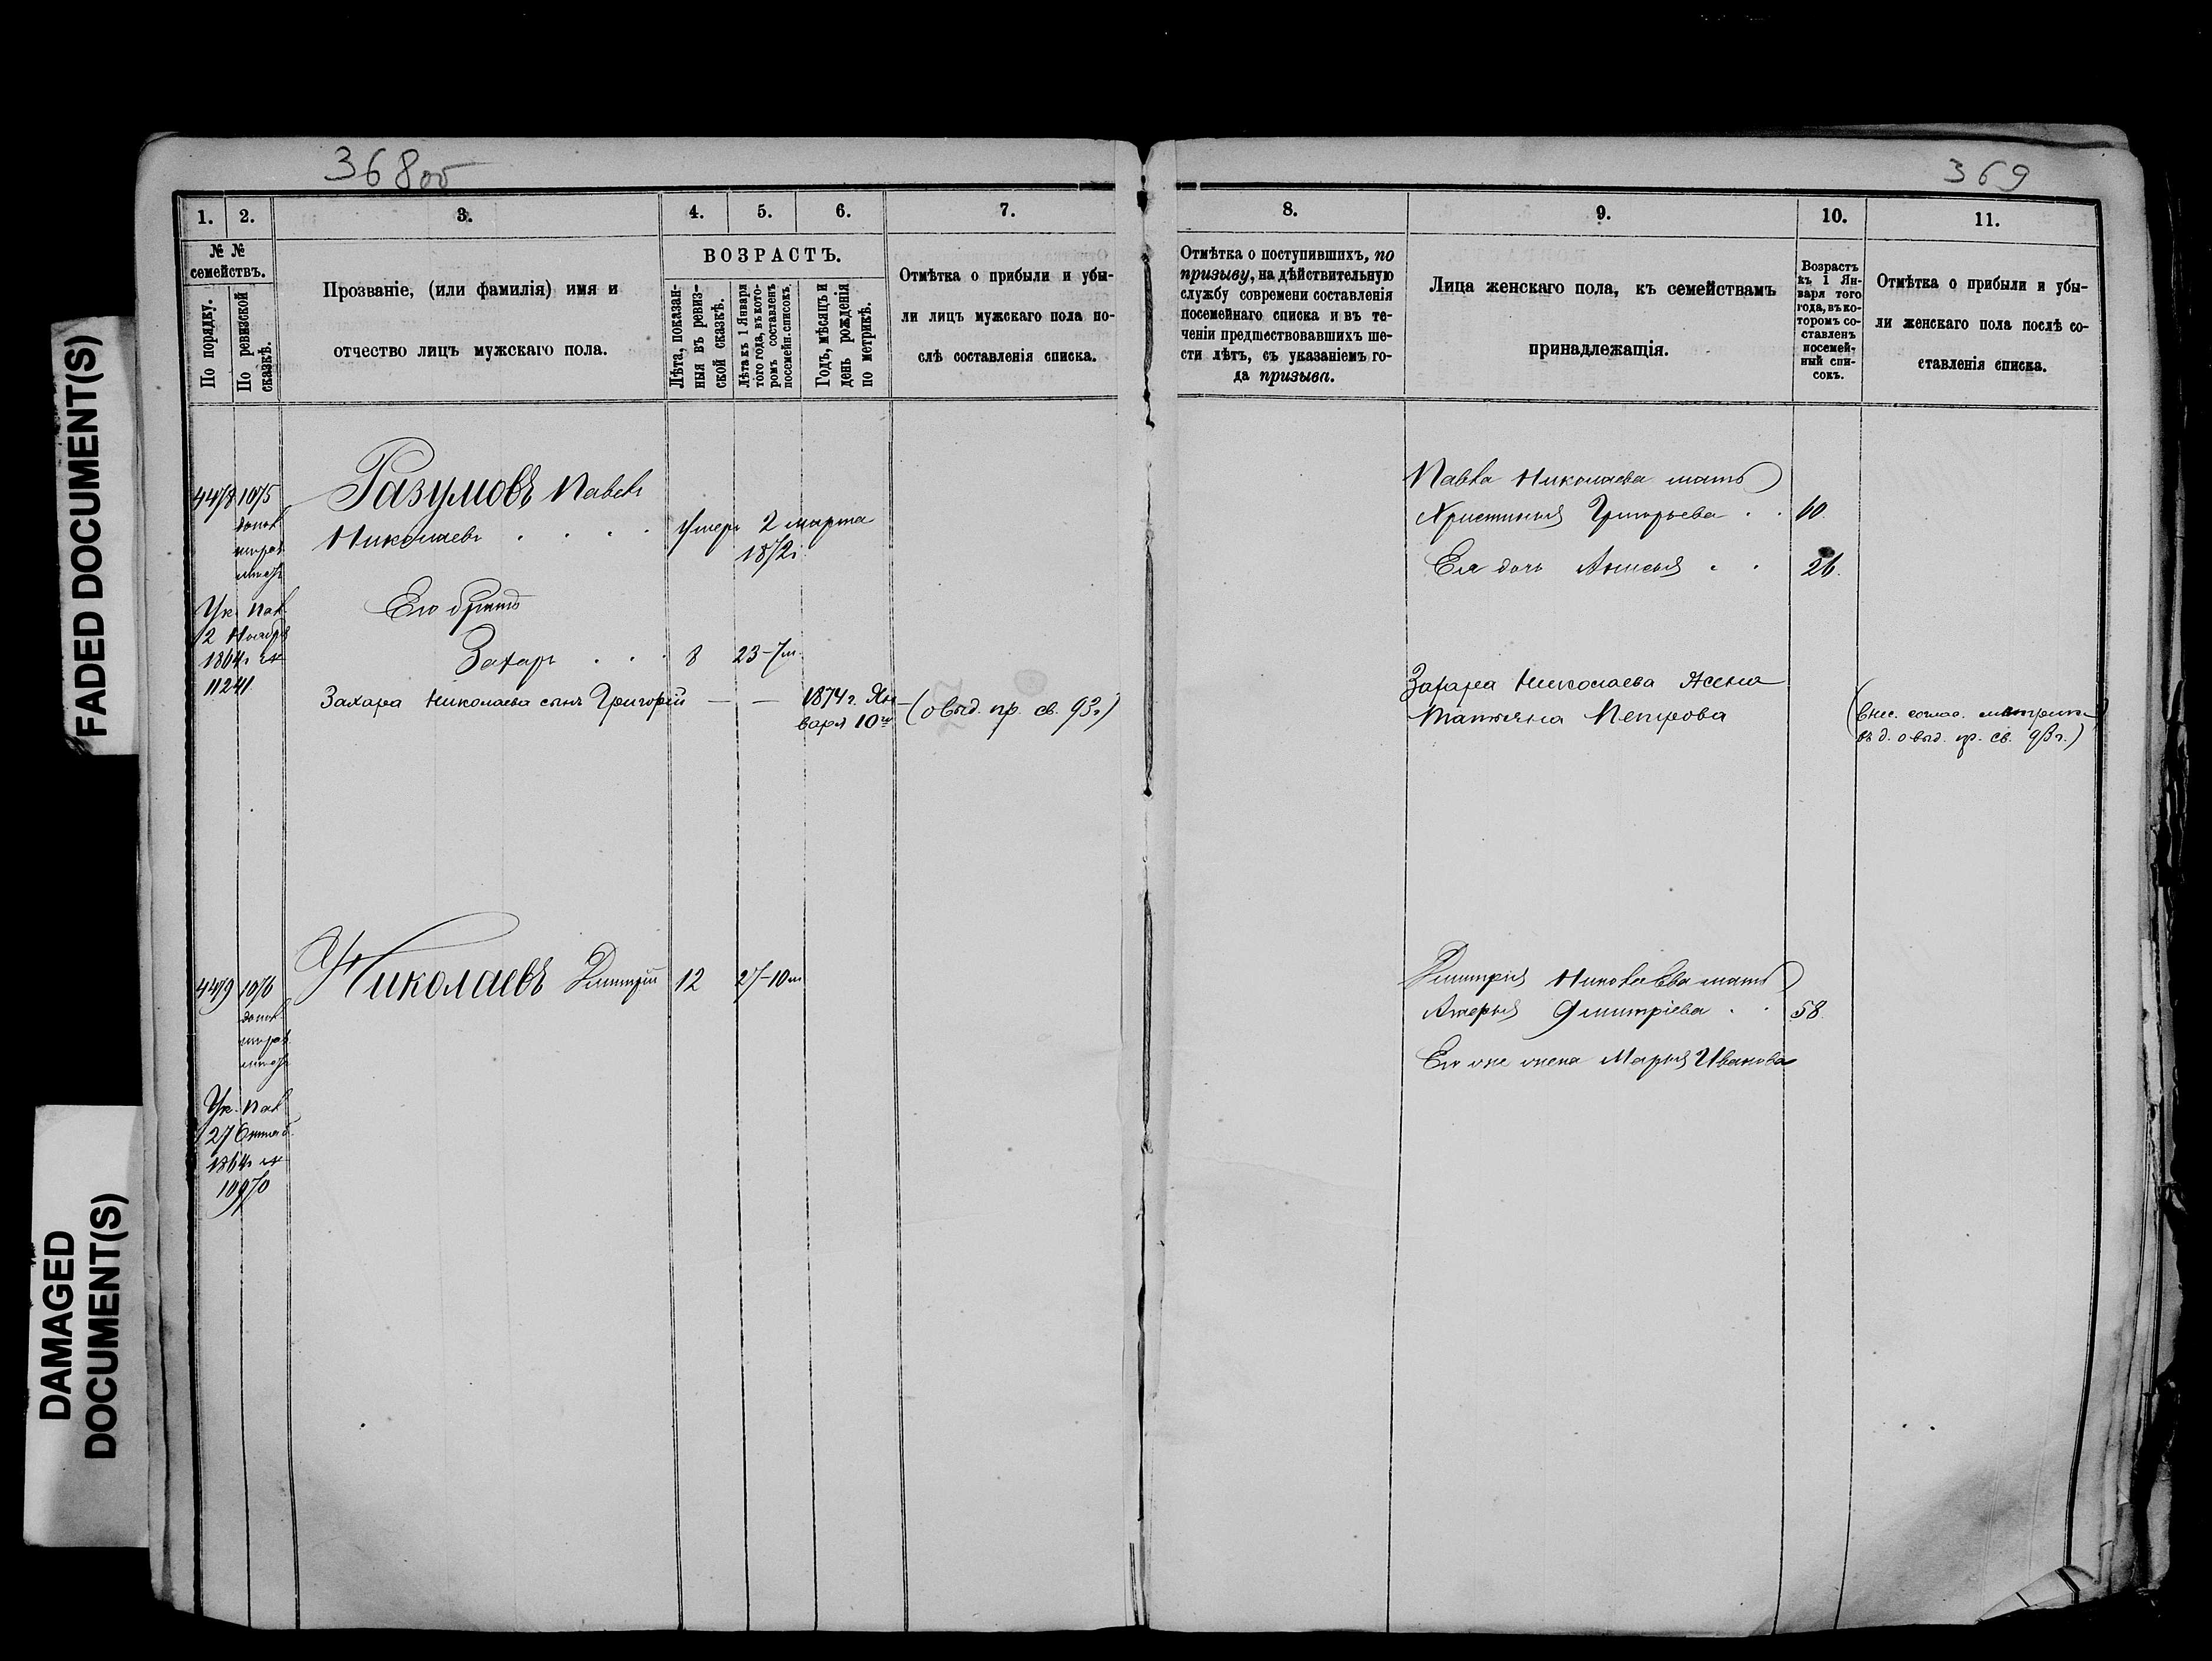 FADED DOCUMENT(S)
DAMAGED
DOCUMENT(S)
368 об
1.
2.
3.
4.
5.
6.
7.
№ №
семействъ.
По порядку.
По ревизской
сказкѣ.
Прозваніе, (или фамилія) имя и
отчество лицъ мужскаго пола.
ВОЗРАСТЪ.
Лѣта, показан-
ныя въ ревиз-
ской сказкѣ.
Лѣта къ 1 Января
того года, въ кото-
ромъ составленъ
посемейн. списокъ.
Годъ, мѣсяцъ и
день рожденія
по метрикѣ.
Отмѣтка о прибыли и убы-
ли лицъ мужскаго пола по-
слѣ составленія списка.
4478 1075
Разумовъ Павелъ
Николаевъ
Умеръ 2 марта
1872г.
Ук. Пал.
2 Ноября
1864г. №
11241
Его братъ
Захаръ 8 23-7м.
Захара Николаева сынъ Григорій — — 1874 г. Ян-
варя 10го
(о выд. пр. св. 93г.)
4479 1076
Николаевъ Дмитрій 12 27-10м
Ук. Пал
27 Октяб.
1864г. №
10970
369
8.
9.
10.
11.
Отмѣтка о поступившихъ, по
призыву, на дѣйствительную
службу современи составленія
посемейнаго списка и въ те-
ченіи предшествовавшихъ ше-
сти лѣтъ, съ указаніемъ го-
да призыва.
Лица женскаго пола, къ семействамъ
принадлежащія.
Возрастъ
къ 1 Ян-
варя того
года, въ ко-
торомъ со-
ставленъ
посемей-
ный спи-
сокъ.
Отмѣтка о прибыли и убы-
ли женскаго пола послѣ со-
ставленія списка.
Павла Николаева мать
Христинья Григорьева 60.
Ея дочь Анисья 26.
Захара Николаева жена
Татьяна Петрова
(внес. соглас. метрик.
въ д. о выд. пр. св. 93г.)
Дмитрія Николаева мать
Дмитріева 58.
Его же жена Марья Иванова